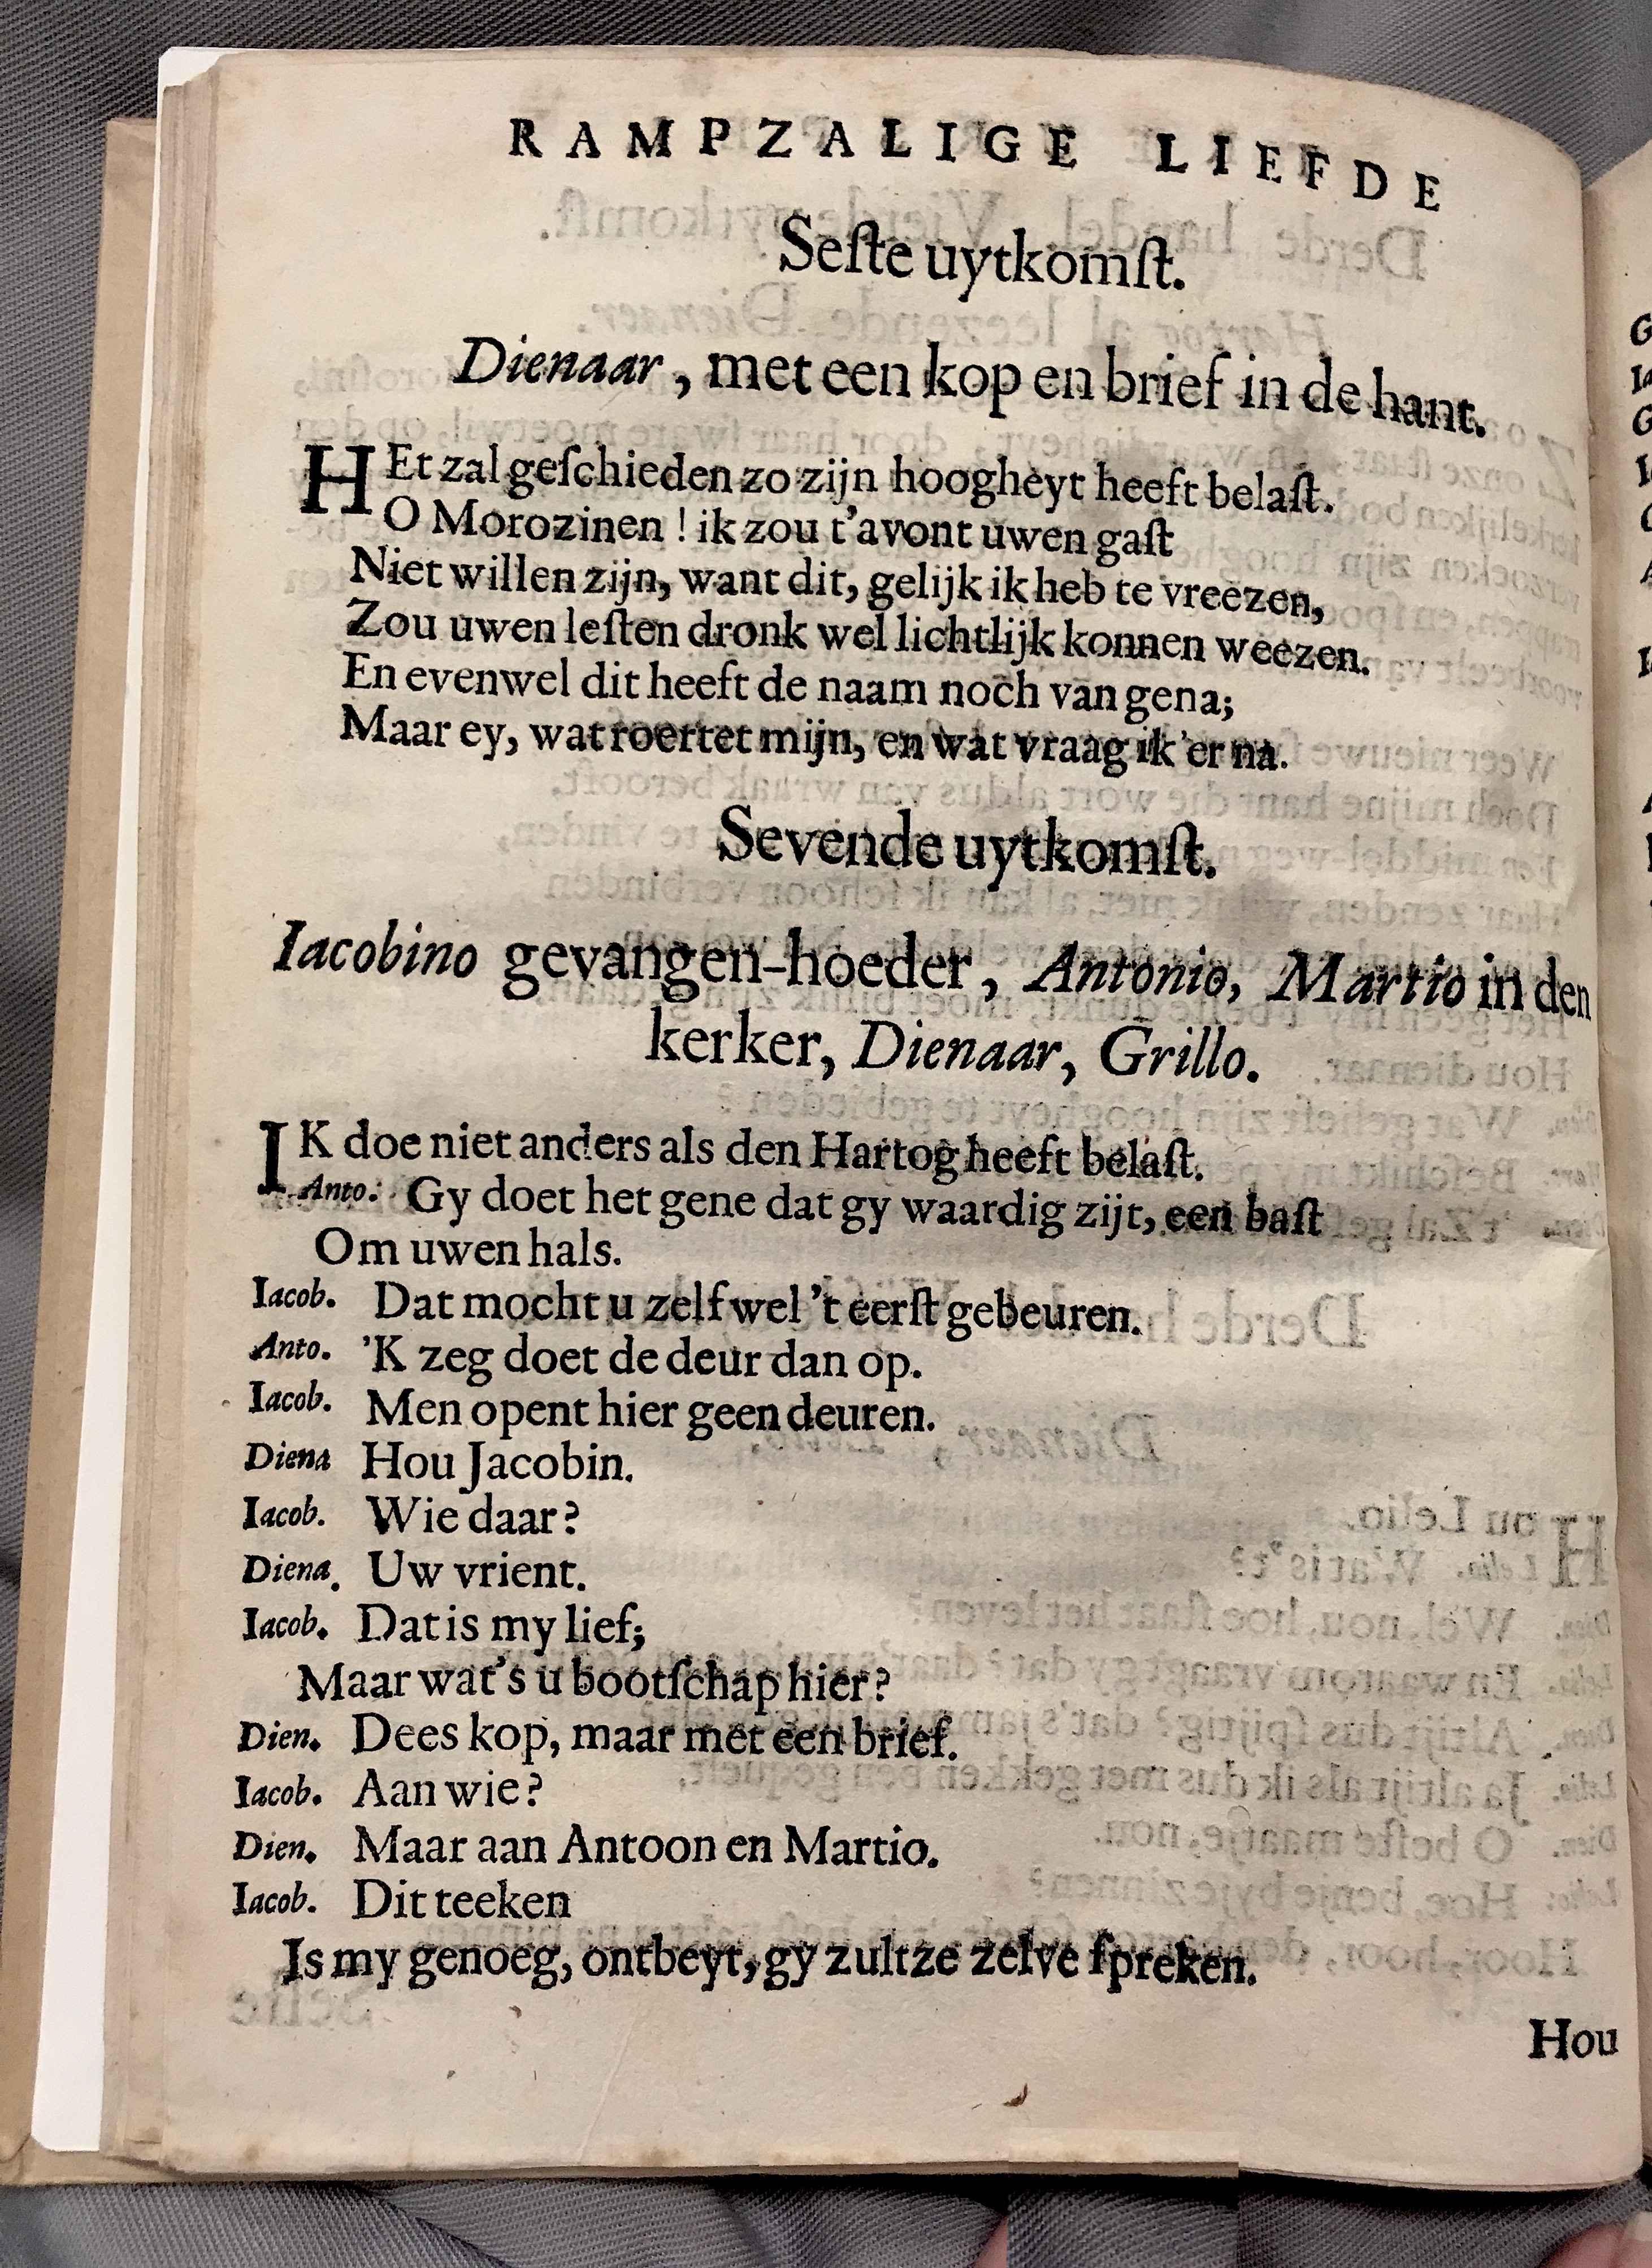 RAMPZALIGE LIEFDE
Seſte uytkomſt.
Dienaar, met een kop en brief in de hant.
HEt zal geſchieden zo zijn hoogheyt heeft belaſt.
O Morozinen ! ik zou t'avont uwen gaſt
Niet willen zijn, want dit, gelijk ik heb te vreezen,
Zou uwen leſten dronk wel lichtlijk konnen weezen.
En evenwel dit heeft de naam noch van gena;
Maar ey, wat roertet mijn, en wat vraag ik 'er na.
Sevende uytkomſt.
Iacobino gevangen-hoeder, Antonio, Martio in den
kerker, Dienaar, Grillo.
IK doe niet anders als den Hartog heeft belaſt.
Anto. Gy doet het gene dat gy waardig zijt, een baſt
Om uwen hals.
Iacob. Dat mocht u zelf wel 't eerſt gebeuren.
Anto. 'K zeg doet de deur dan op.
Iacob. Men opent hier geen deuren.
Diena Hou Jacobin.
Iacob. Wie daar?
Diena. Uw vrient.
Iacob. Dat is my lief;
Maar wat's u bootſchap hier?
Dien. Dees kop, maar met een brief.
Iacob. Aan wie?
Dien. Maar aan Antoon en Martio.
Iacob. Dit teeken
Is my genoeg, ontbeyt, gy zultze zelve ſpreken.
Hou